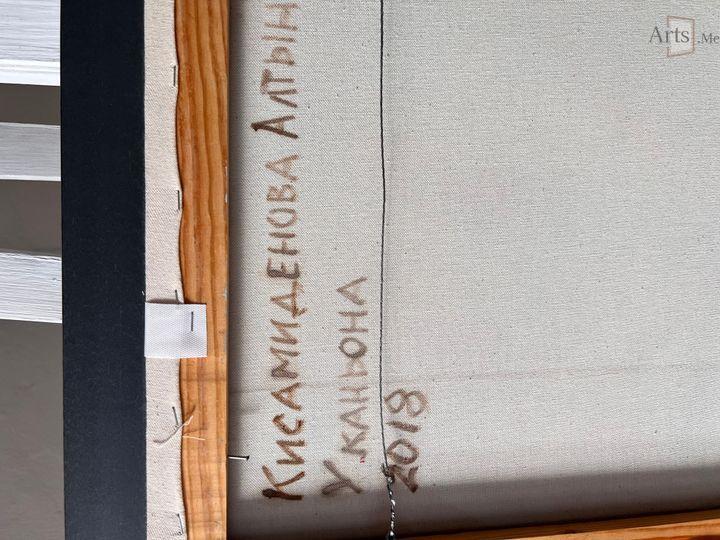 Кисамиденова Алтын
У каньона
2018
Arts.Me